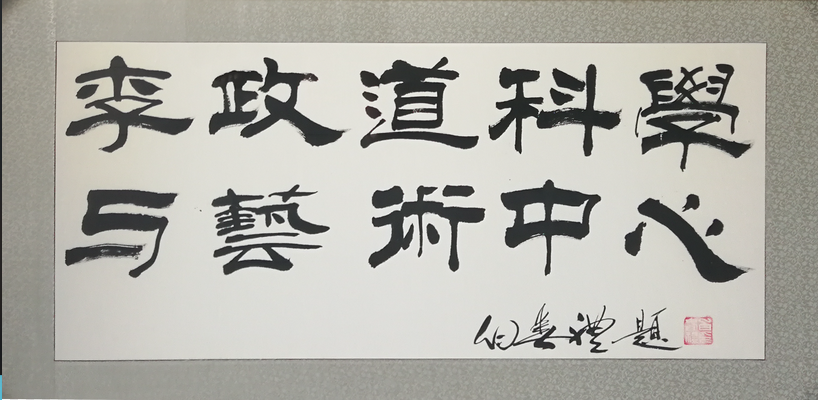 李政道科學
与藝術中心
伯娄禮題